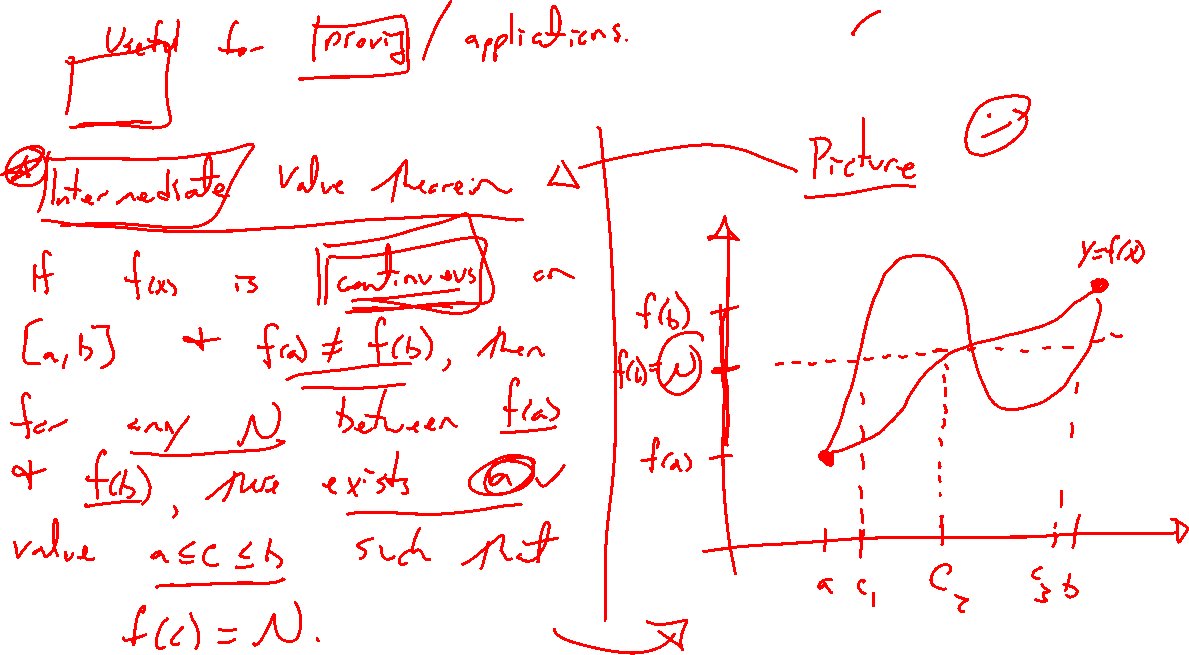 Useful for proving / applications.
Intermediate value theorem
If f(x) is continuous on
[a,b] + f(a) ≠ f(b), then
for any N between f(a)
+ f(b), there exists a
value a ≤ c ≤ b such that
f(c) = N.
Picture
y=f(x)
f(b)
f(c)=N
f(a)
a c₁ c₂ c₃ b